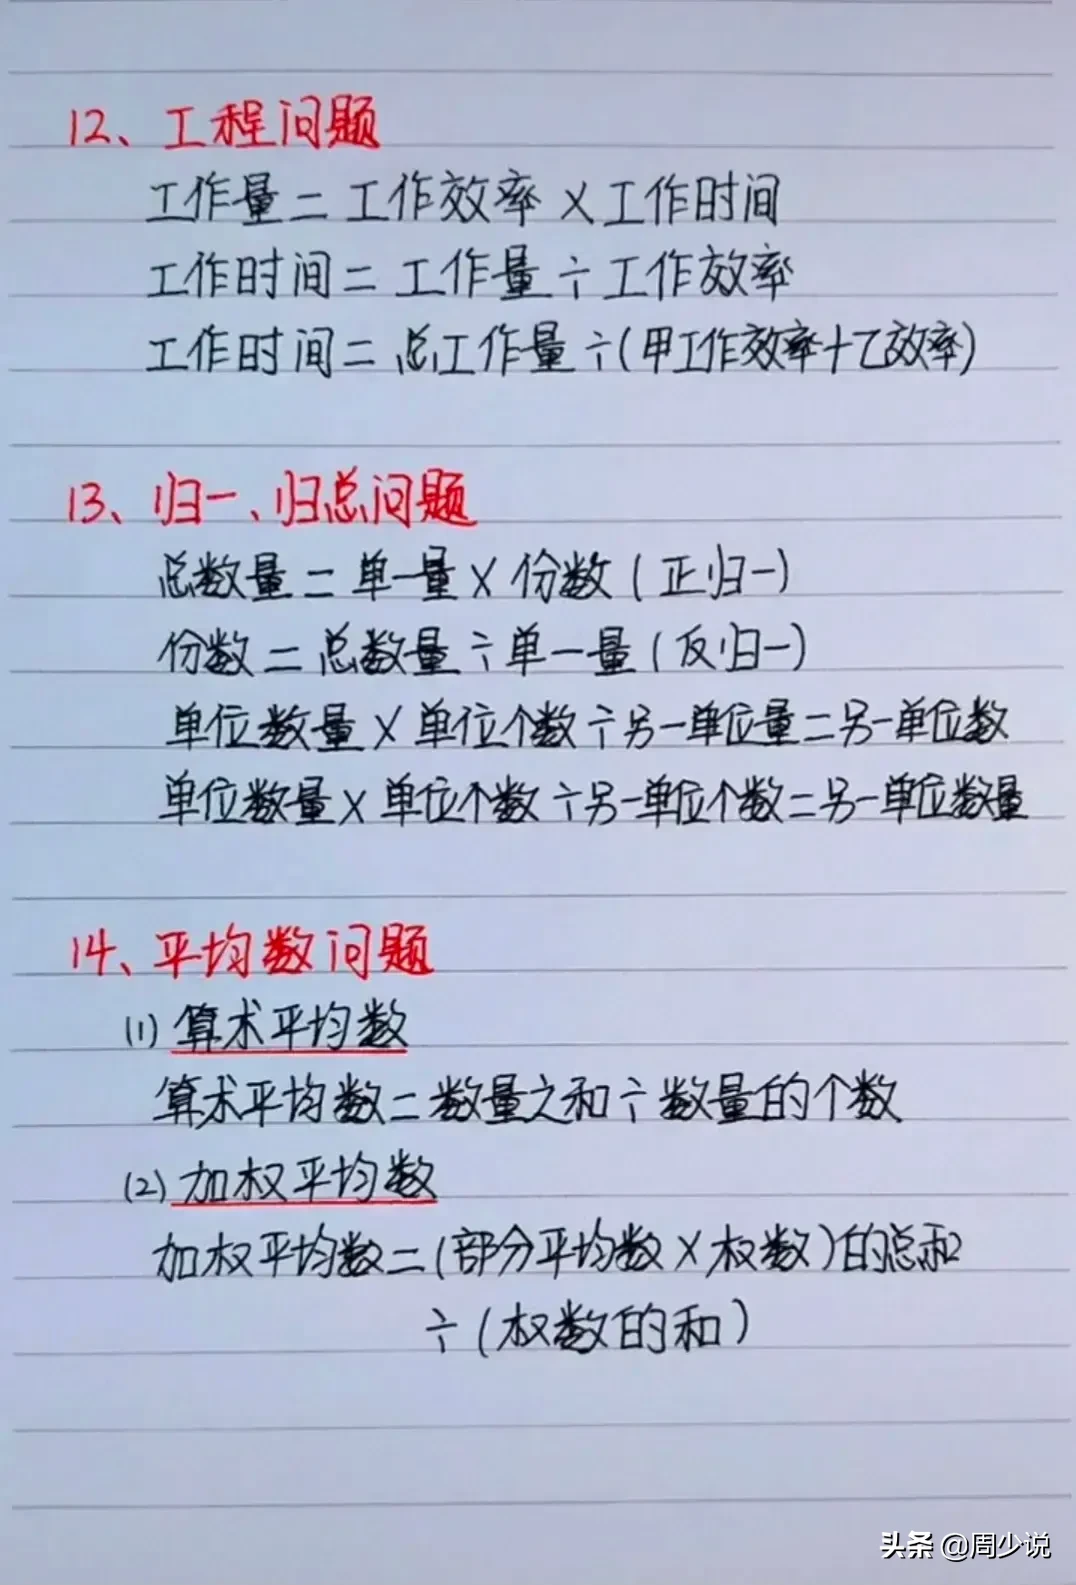 12、工程问题
工作量=工作效率×工作时间
工作时间=工作量÷工作效率
工作时间=总工作量÷(甲工作效率+乙效率)
13、归一、归总问题
总数量=单一量×份数(正归一)
份数=总数量÷单一量(反归一)
单位数量×单位个数÷另一单位量=另一单位数
单位数量×单位个数÷另一单位个数=另一单位数量
14、平均数问题
(1)算术平均数
算术平均数=数量之和÷数量的个数
(2)加权平均数
加权平均数=(部分平均数×权数)的总和
÷(权数的和)
头条 @周少说